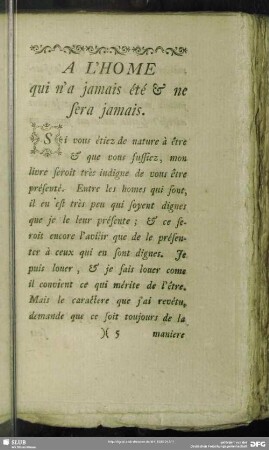 A L'HOME
qui n'a jamais été & ne
sera jamais.
Si vous étiez de nature à être
& que vous fussiez, mon
livre seroit très indigne de vous être
présenté. Entre les homes qui sont,
il en est très peu qui soyent dignes
que je le leur présente; & ce se-
roit encore l'avilir que de le présen-
ter à ceux qui en sont dignes. Je
puis louer, & je sais louer come
il convient ce qui mérite de l'être.
Mais le caractere que j'ai revétu,
demande que ce soit toujours de la
)( 5 maniere
SLUB
DFG